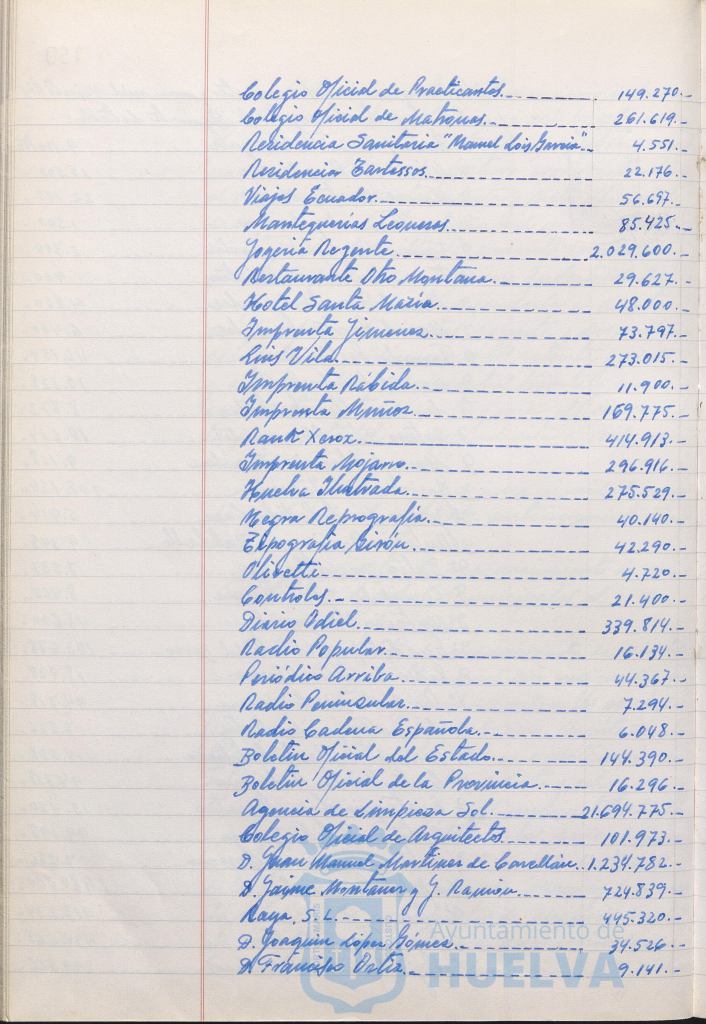 Colegio Oficial de Practicantes. 149.270.-
Colegio Oficial de Matronas. 261.619.-
Residencia Sanitaria "Manuel Lois García". 4.551.-
Residencia Tartessos. 22.176.-
Viajes Ecuador. 56.697.-
Mantequerías Leonesas. 85.425.-
Joyería Regente. 2.029.600.-
Restaurante Otto Montana. 29.627.-
Hotel Santa María. 48.000.-
Imprenta Jiménez. 73.797.-
Luis Vila. 273.015.-
Imprenta Rábida. 11.900.-
Imprenta Muñoz. 169.775.-
Rank Xerox. 414.913.-
Imprenta Mojarro. 296.916.-
Huelva Ilustrada. 275.529.-
Megra Reprografía. 40.140.-
Tipografía Girón. 42.290.-
Olivetti. 4.720.-
Controles. 21.400.-
Diario Odiel. 339.814.-
Radio Popular. 16.134.-
Periódico Arriba. 44.367.-
Radio Peninsular. 7.294.-
Radio Cadena Española. 6.048.-
Boletín Oficial del Estado. 144.390.-
Boletín Oficial de la Provincia. 16.296.-
Agencia de Limpieza Sol. 21.694.775.-
Colegio Oficial de Arquitectos. 101.973.-
D. Juan Manuel Martínez de 1.234.782.-
D. Jaime Montaner y J. Ramón. 724.839.-
Raya, S.L. 445.320.-
D. Joaquín López Gómez. 34.526.-
D. Francisco Ortiz. 9.141.-
Ayuntamiento de
HUELVA